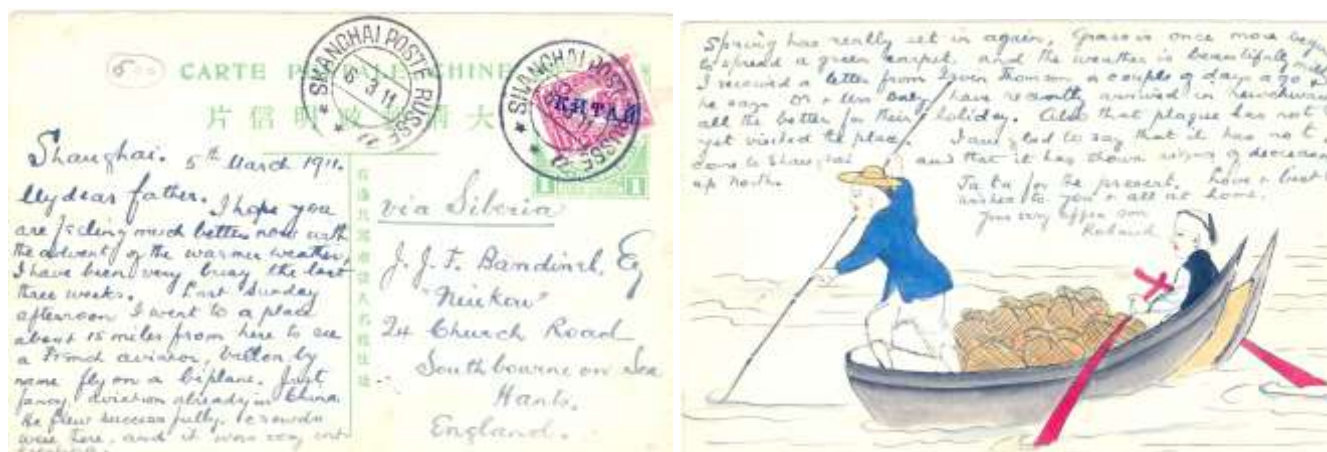 500
CARTE POSTALE CHINE
片信明政郵清大
SHANGHAI POSTE RUSSE
6 3 11
SHANGHAI POSTE RUSSE
КИТАЙ
1 1
Shanghai. 5th March 1911.
My dear father. I hope you
are feeling much better now with
the advent of the warmer weather,
I have been very busy the last
three weeks. Last Sunday
afternoon I went to a place
about 15 miles from here to see
a French aviator, Vallon by
name fly on a biplane. Just
fancy, aviation already in China.
He flew successfully. crowds
were there, and it was very
via Siberia
J. J. F. Bandinel, Esq
"Niukou"
24 Church Road
Southbourne on Sea
Hants.
England.
Spring has really set in again, Grass is once more
to spread a green carpet, and the weather is beautifully
I received a letter from Thomson a couple of days ago &
he says have recently arrived in
all the better for their holiday. Also that plague has not
yet visited the place. I am glad to say that it has not
come to Shanghai and that it has shown signs of
up North.
Ta ta for the present. Love & best
wishes to you & all at home.
Your very son